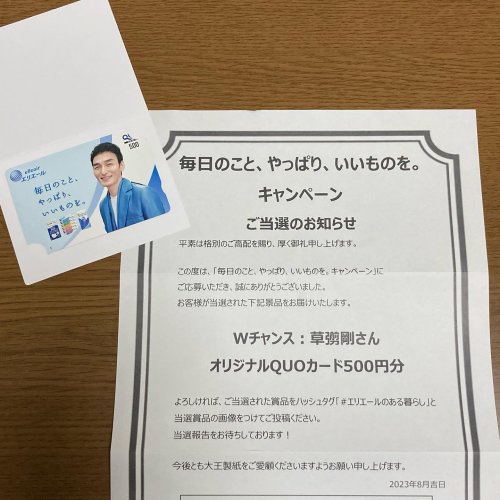 elleair
エリエール
毎日のこと、
やっぱり、
いいものを。
500
毎日のこと、やっぱり、いいものを。
キャンペーン
ご当選のお知らせ
平素は格別のご高配を賜り、厚く御礼申し上げます。
この度は、「毎日のこと、やっぱり、いいものを。キャンペーン」に
ご応募いただき、誠にありがとうございました。
お客様が当選された下記景品をお届けいたします。
Wチャンス：草彅剛さん
オリジナルQUOカード500円分
よろしければ、ご当選された賞品をハッシュタグ「#エリエールのある暮らし」と
当選賞品の画像をつけてご投稿ください。
当選報告をお待ちしております！
今後とも大王製紙をご愛顧くださいますようお願い申し上げます。
2023年8月吉日